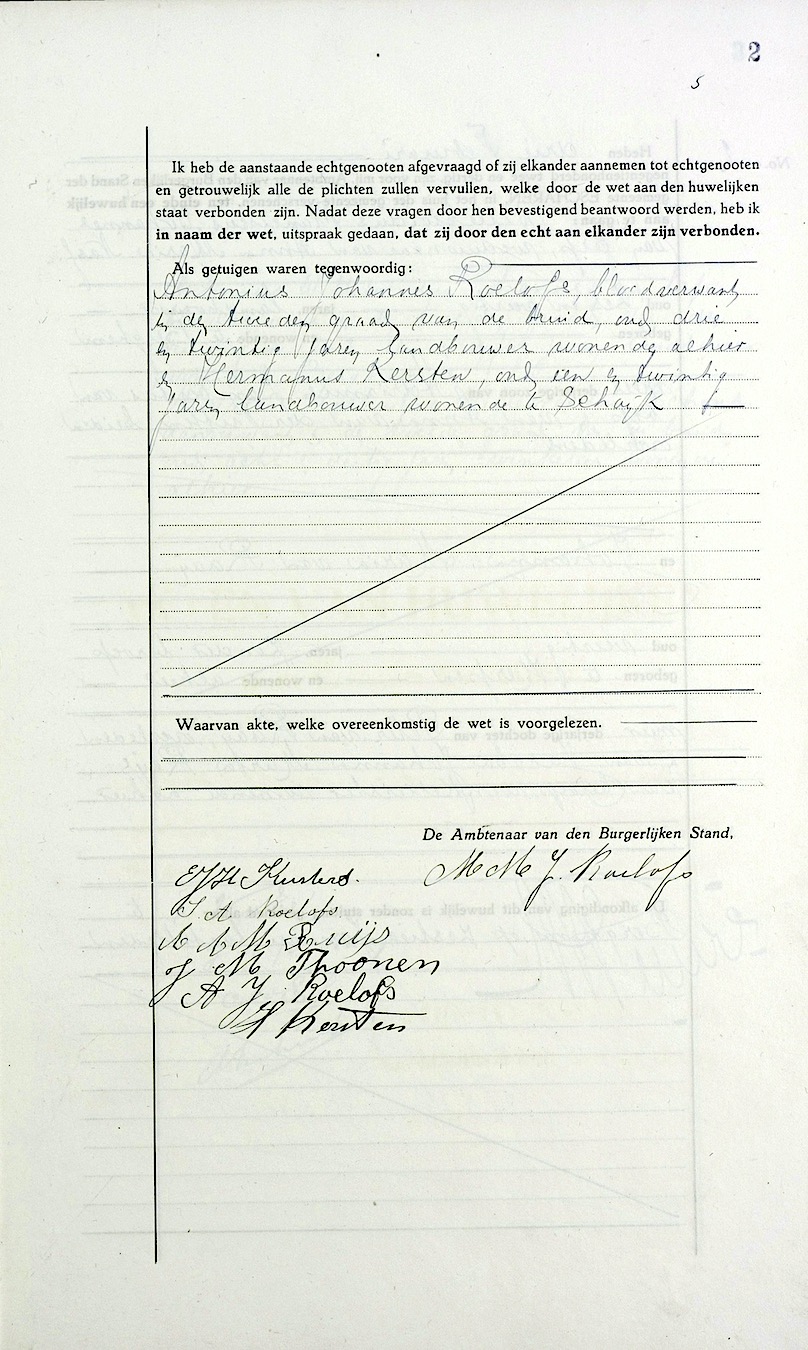 2
5
Ik heb de aanstaande echtgenooten afgevraagd of zij elkander aannemen tot echtgenooten
en getrouwelijk alle de plichten zullen vervullen, welke door de wet aan den huwelijken
staat verbonden zijn. Nadat deze vragen door hen bevestigend beantwoord werden, heb ik
in naam der wet, uitspraak gedaan, dat zij door den echt aan elkander zijn verbonden.
Als getuigen waren tegenwoordig:
Antonius Johannes Roelofs, bloedverwant
in den tweeden graad van de bruid, oud drie
en twintig jaren landbouwer wonende alhier
en Hermanus Kersten, oud een en twintig
jaren landbouwer wonende te Schayk
Waarvan akte, welke overeenkomstig de wet is voorgelezen.
De Ambtenaar van den Burgerlijken Stand,
Kusters. M M J. Roelofs
A. Roelofs
A M Ruijs
J M Thoonen
A J Roelofs
H Kersten